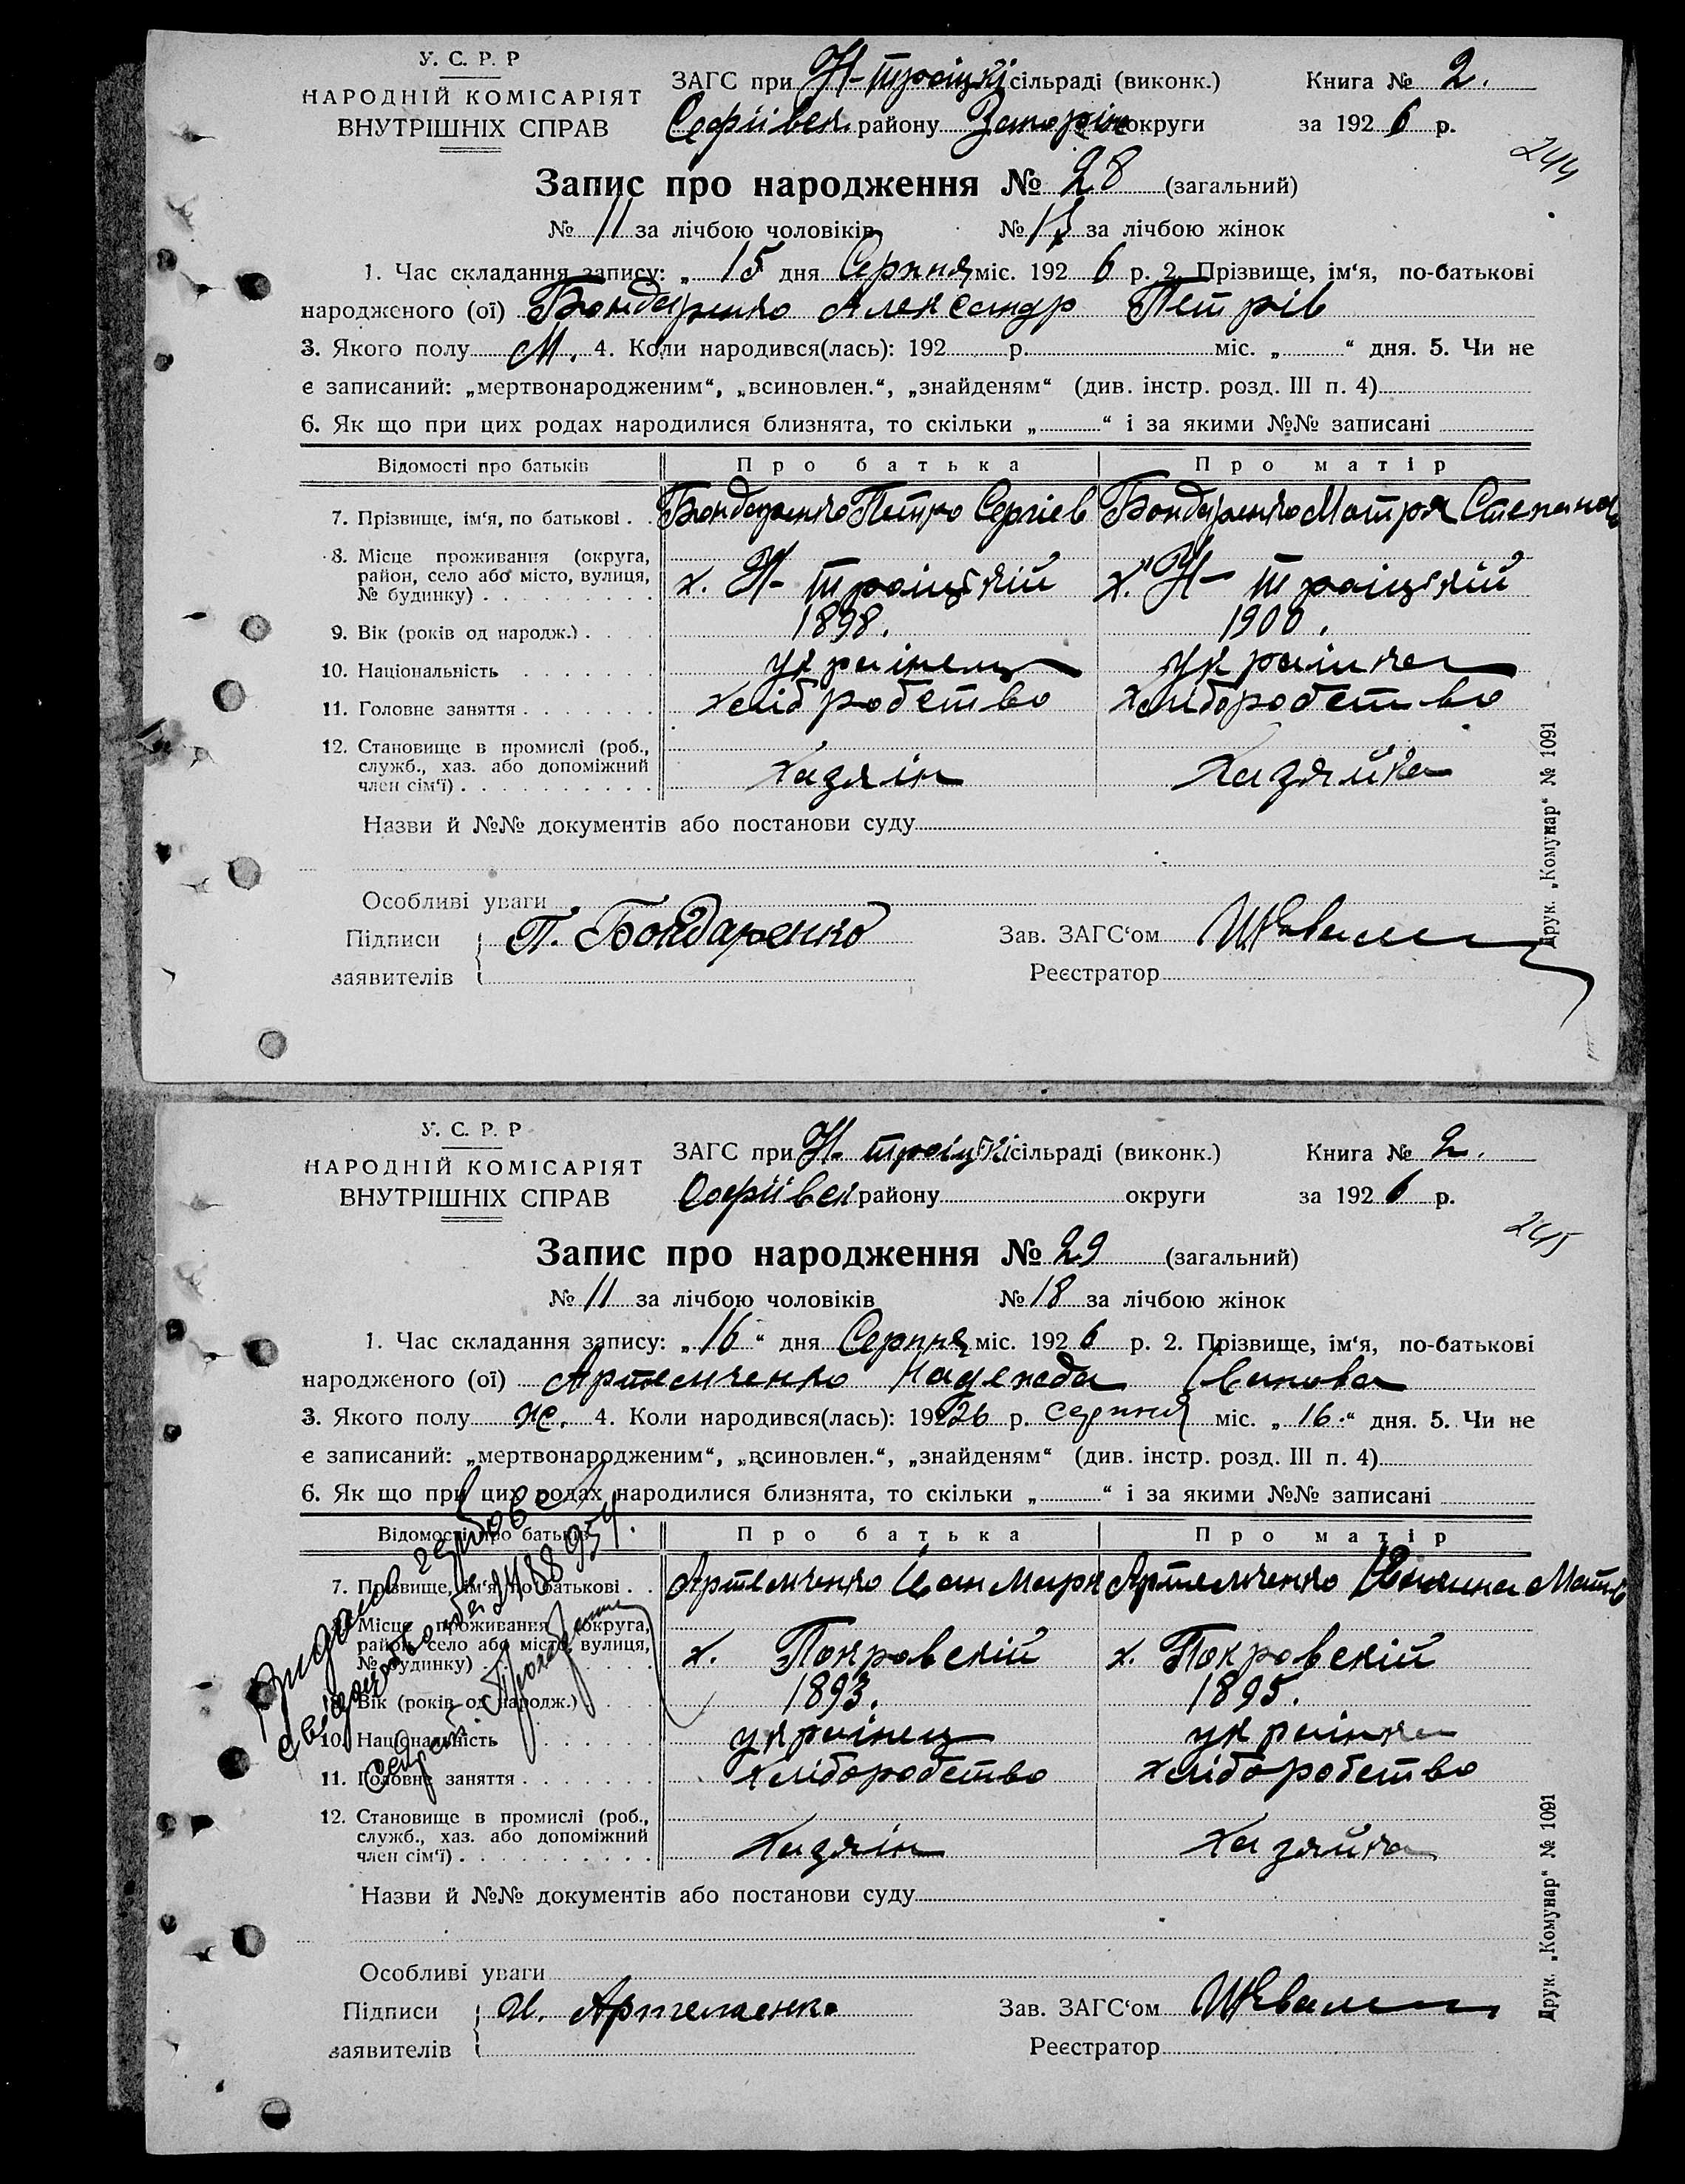 У. С. Р. Р
НАРОДНІЙ КОМІСАРІЯТ
ВНУТРІШНІХ СПРАВ
ЗАГС при Н-Троіцкі сільраді (виконк.)
Софіівск. району Запоріж округи
Книга № 2.
за 1926 р.
244
Запис про народження № 28 (загальний)
№ 11 за лічбою чоловіків № за лічбою жінок
1. Час складання запису: „ 15 дня Серпня міс. 1926 р. 2. Прізвище, ім‘я, по-батькові
народженого (ої) Бондаренко Александр Петрів
3. Якого полу М. 4. Коли народився(лась): 192 р. міс. „ “ дня. 5. Чи не
є записаний: „мертвонародженим“, „всиновлен.“, „знайденям“ (див. інстр. розд. III п. 4)
6. Як що при цих родах народилися близнята, то скільки „ “ і за якими №№ записані
Відомості про батьків Про батька Про матір
7. Прізвище, ім‘я, по батькові . . Бондаренко Петро Сергіев Бондаренко Мотря Степанов
8. Місце проживання (округа,
район, село або місто, вулиця,
№ будинку) . . . . . . . . . х. Н- Троіцкій х. Н- Троіцкій
9. Вік (років од народж.) . . . . 1898. 1900.
10. Національність . . . . . . . украінец украінка
11. Головне заняття . . . . . . . хлібробство хліборобство
12. Становище в промислі (роб.,
служб., хаз. або допоміжний
член сім‘ї) . . . . . . . . . . Хазяін Хазяйка
Назви й №№ документів або постанови суду
Особливі уваги
Підписи
заявителів П. Бондаренко
Зав. ЗАГС‘ом
Реєстратор
Друк. „Комунар“ № 1091
У. С. Р. Р
НАРОДНІЙ КОМІСАРІЯТ
ВНУТРІШНІХ СПРАВ
ЗАГС при Н. Троіцкі сільраді (виконк.)
Софіівск району округи
Книга № 2.
за 1926 р.
245
Запис про народження № 29 (загальний)
№ 11 за лічбою чоловіків № 18 за лічбою жінок
1. Час складання запису: „ 16 “ дня Серпня міс. 1926 р. 2. Прізвище, ім‘я, по-батькові
народженого (ої) Артемченко Надежда Іванова
3. Якого полу ж. 4. Коли народився(лась): 1926 р. серпня міс. „ 16 “ дня. 5. Чи не
є записаний: „мертвонародженим“, „всиновлен.“, „знайденям“ (див. інстр. розд. III п. 4)
6. Як що при цих родах народилися близнята, то скільки „ “ і за якими №№ записані
Відомості про батьків Про батька Про матір
7. Прізвище, ім‘я, по батькові . . Артемченко Іван Марк Артемченко Матв
8. Місце проживання (округа,
район, село або місто, вулиця,
№ будинку) х. Покровскій х. Покровскій
9. Вік (років од народж.) . . 1893. 1895.
10. Національність . . . . . . украінец украінка
11. Головне заняття . . . . . . . хліборобство хліборобство
12. Становище в промислі (роб.,
служб., хаз. або допоміжний
член сім‘ї) . . . . . . . . . . Хазяін Хазяйка
Назви й №№ документів або постанови суду
Особливі уваги
Підписи
заявителів И. Артемченко
Зав. ЗАГС‘ом
Реєстратор
Друк. „Комунар“ № 1091